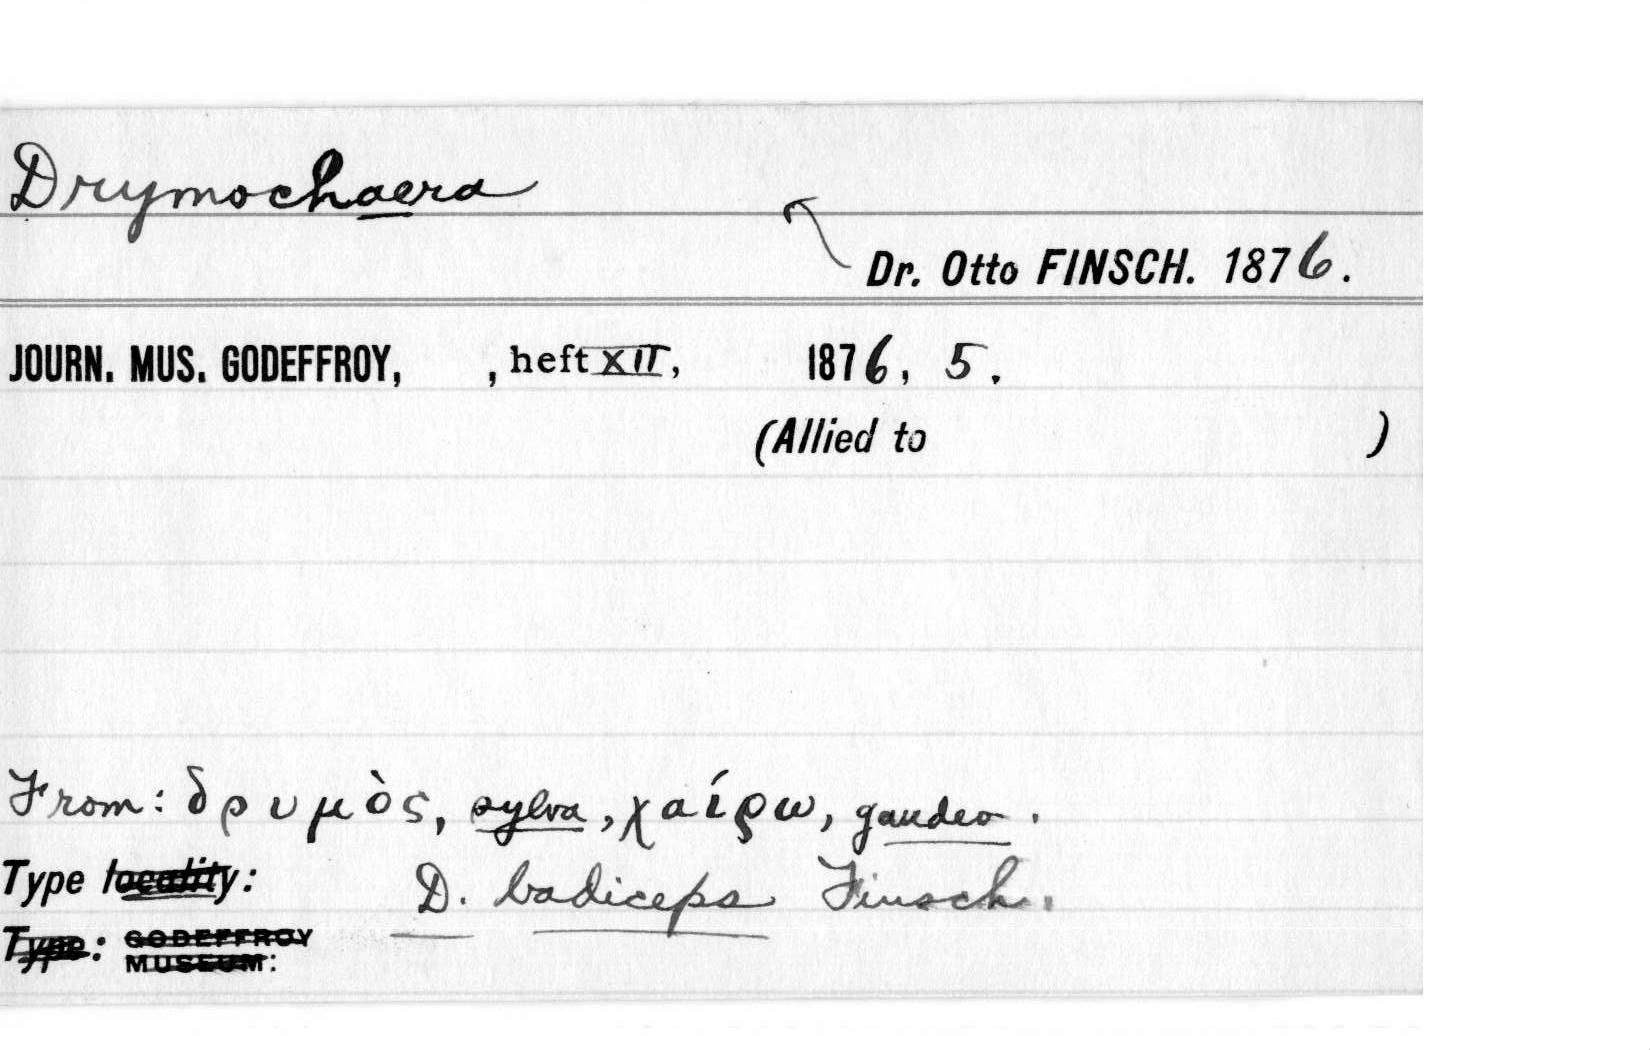 Drymochaera
Dr. Otto FINSCH. 1876.
JOURN. MUS. GODEFFROY, , heft XII, 1876, 5.
(Allied to )
From: δρυμὸς, sylva, χαίρω, gaudeo.
Type locality: D. badiceps Finsch.
Type: GODEFFROY
MUSEUM: